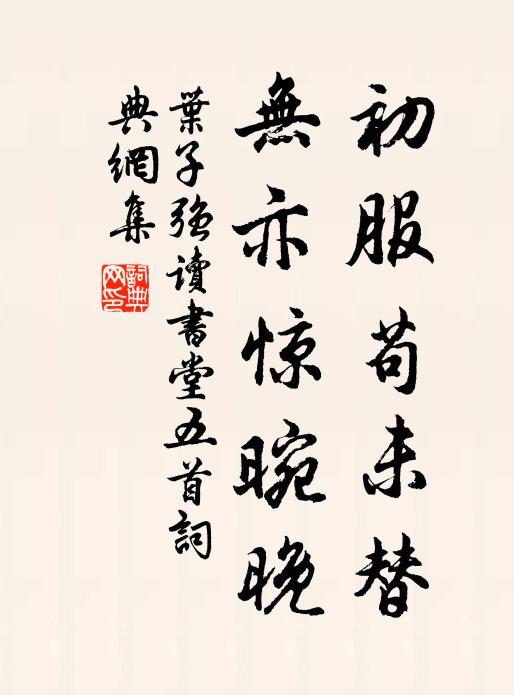 初服苟未替
無亦惊晼晚
葉子強讀書堂五首詞
典網集
詞典網印